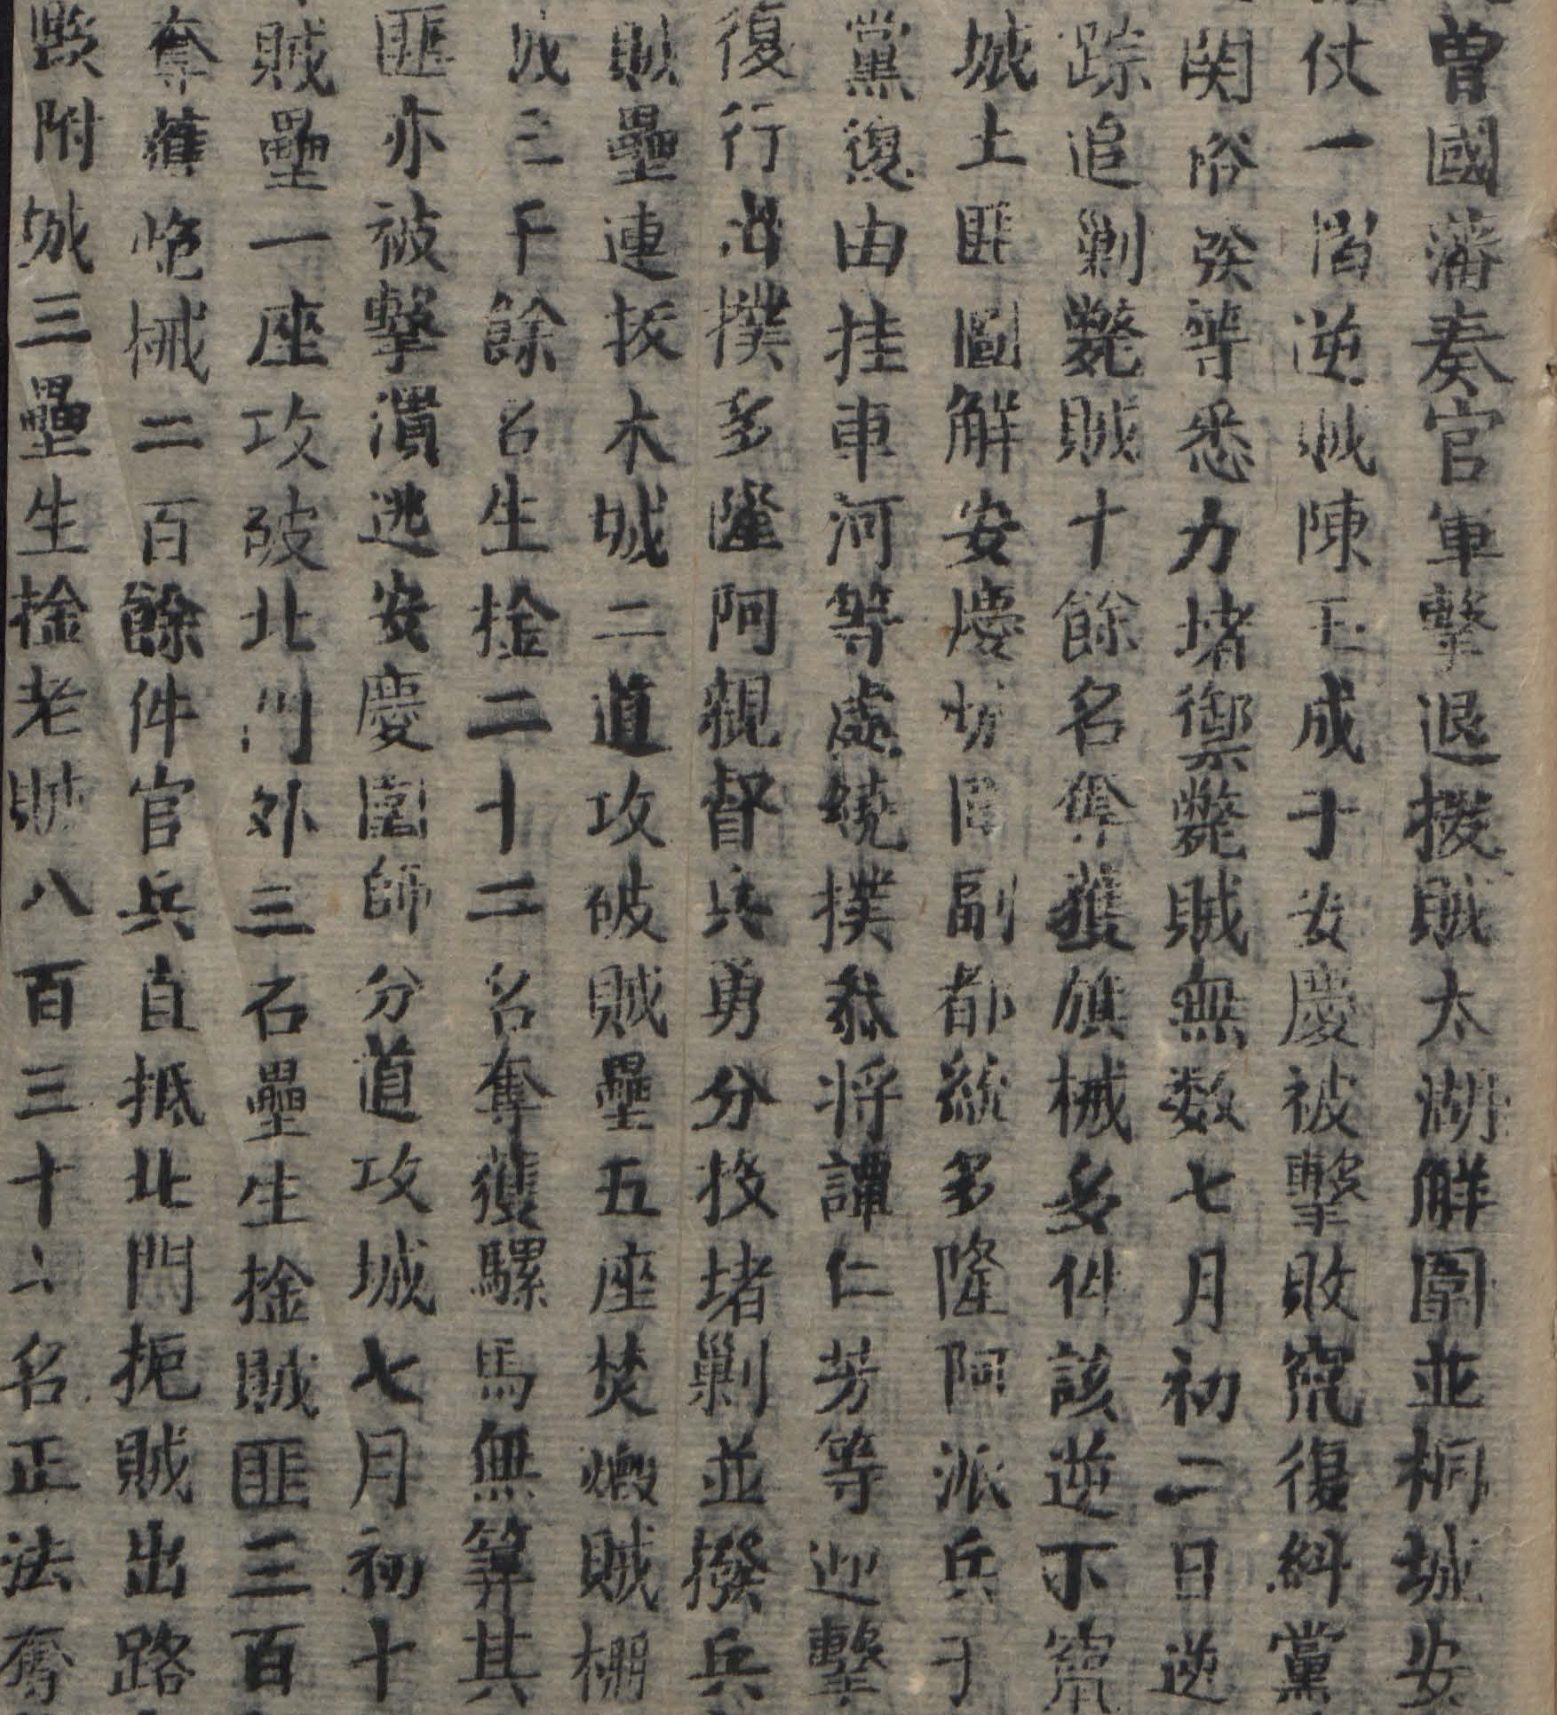 曾國藩奏官軍擊退援賊太湖解圍並桐城安
仗一層逆賊陳玉成于安慶被擊敗竄復糾黨
関峪筞等悉力堵禦斃賊無数七月初二日逆
踪追剿斃賊十餘名奪獲旗械多件該逆下竄
城土匪圖解安慶城圍副都統多隆阿派兵于
黨復由挂車河等處繞撲叅将譚仁芳等迎擊
復行出撲多隆阿親督兵勇分投堵剿並撥兵
賊壘連拔木城二道攻破賊壘五座焚燬賊棚
賊三千餘名生擒二十二名奪獲騾馬無算其
匪亦被擊潰逃安慶圍師分道攻城七月初十
賊壘一座攻破北門外三石壘生擒賊匪三百
奪獲炮械二百餘件官兵直抵北門扼賊出路
毀附城三壘生擒老賊八百三十名正法奪